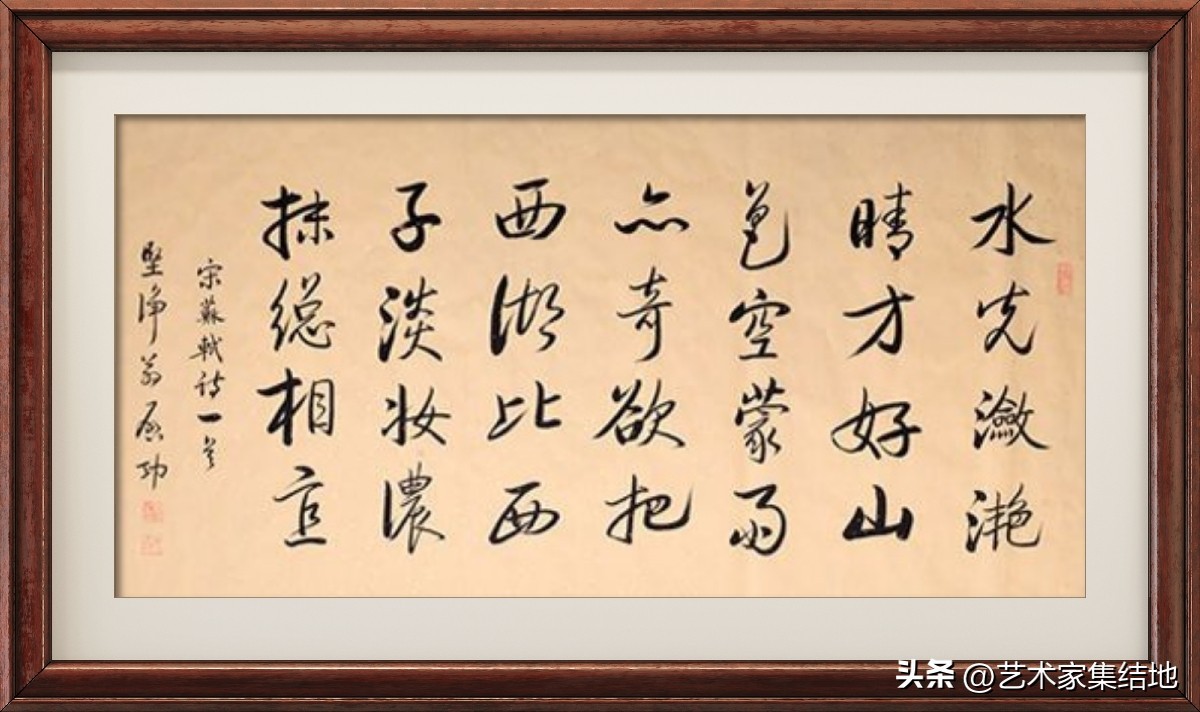 水光瀲滟
晴方好山
色空蒙雨
亦奇欲把
西湖比西
子淡妆濃
抹總相宜
宋蘇軾诗一首
坚净翁启功
头条 @艺术家集结地